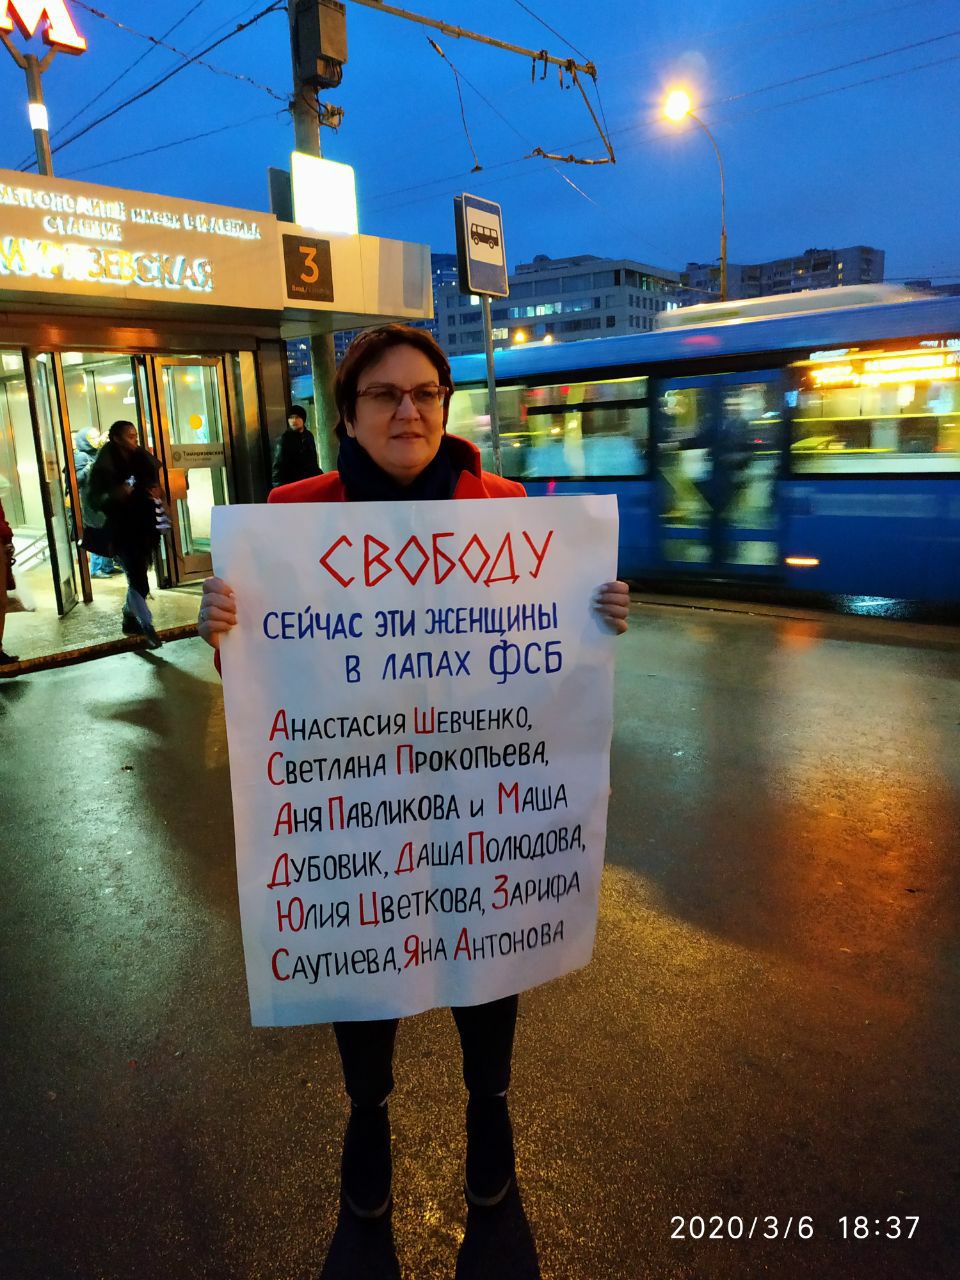 М
МЕТРОПОЛИТЕН ИМЕНИ В.И.ЛЕНИНА
СТАНЦИЯ
3
Тимирязевская
СВОБОДУ
СЕЙЧАС ЭТИ ЖЕНЩИНЫ
В ЛАПАХ ФСБ
АНАСТАСИЯ ШЕВЧЕНКО,
СВЕТЛАНА ПРОКОПЬЕВА,
АНЯ ПАВЛИКОВА И МАША
ДУБОВИК, ДАША ПОЛЮДОВА,
ЮЛИЯ ЦВЕТКОВА, ЗАРИФА
САУТИЕВА, ЯНА АНТОНОВА
2020/3/6 18:37